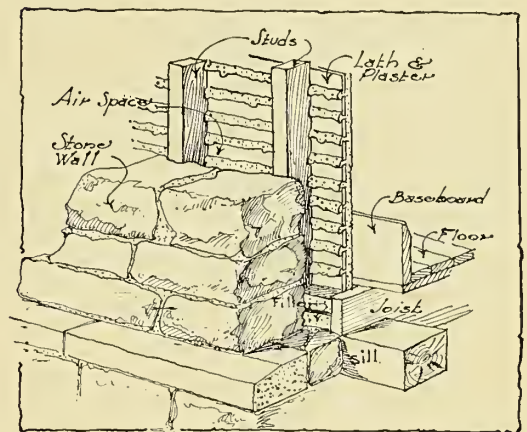 Studs
Lath &
Plaster
Air Space
Stone
Wall
Baseboard
Floor
Filler
Joist
Sill